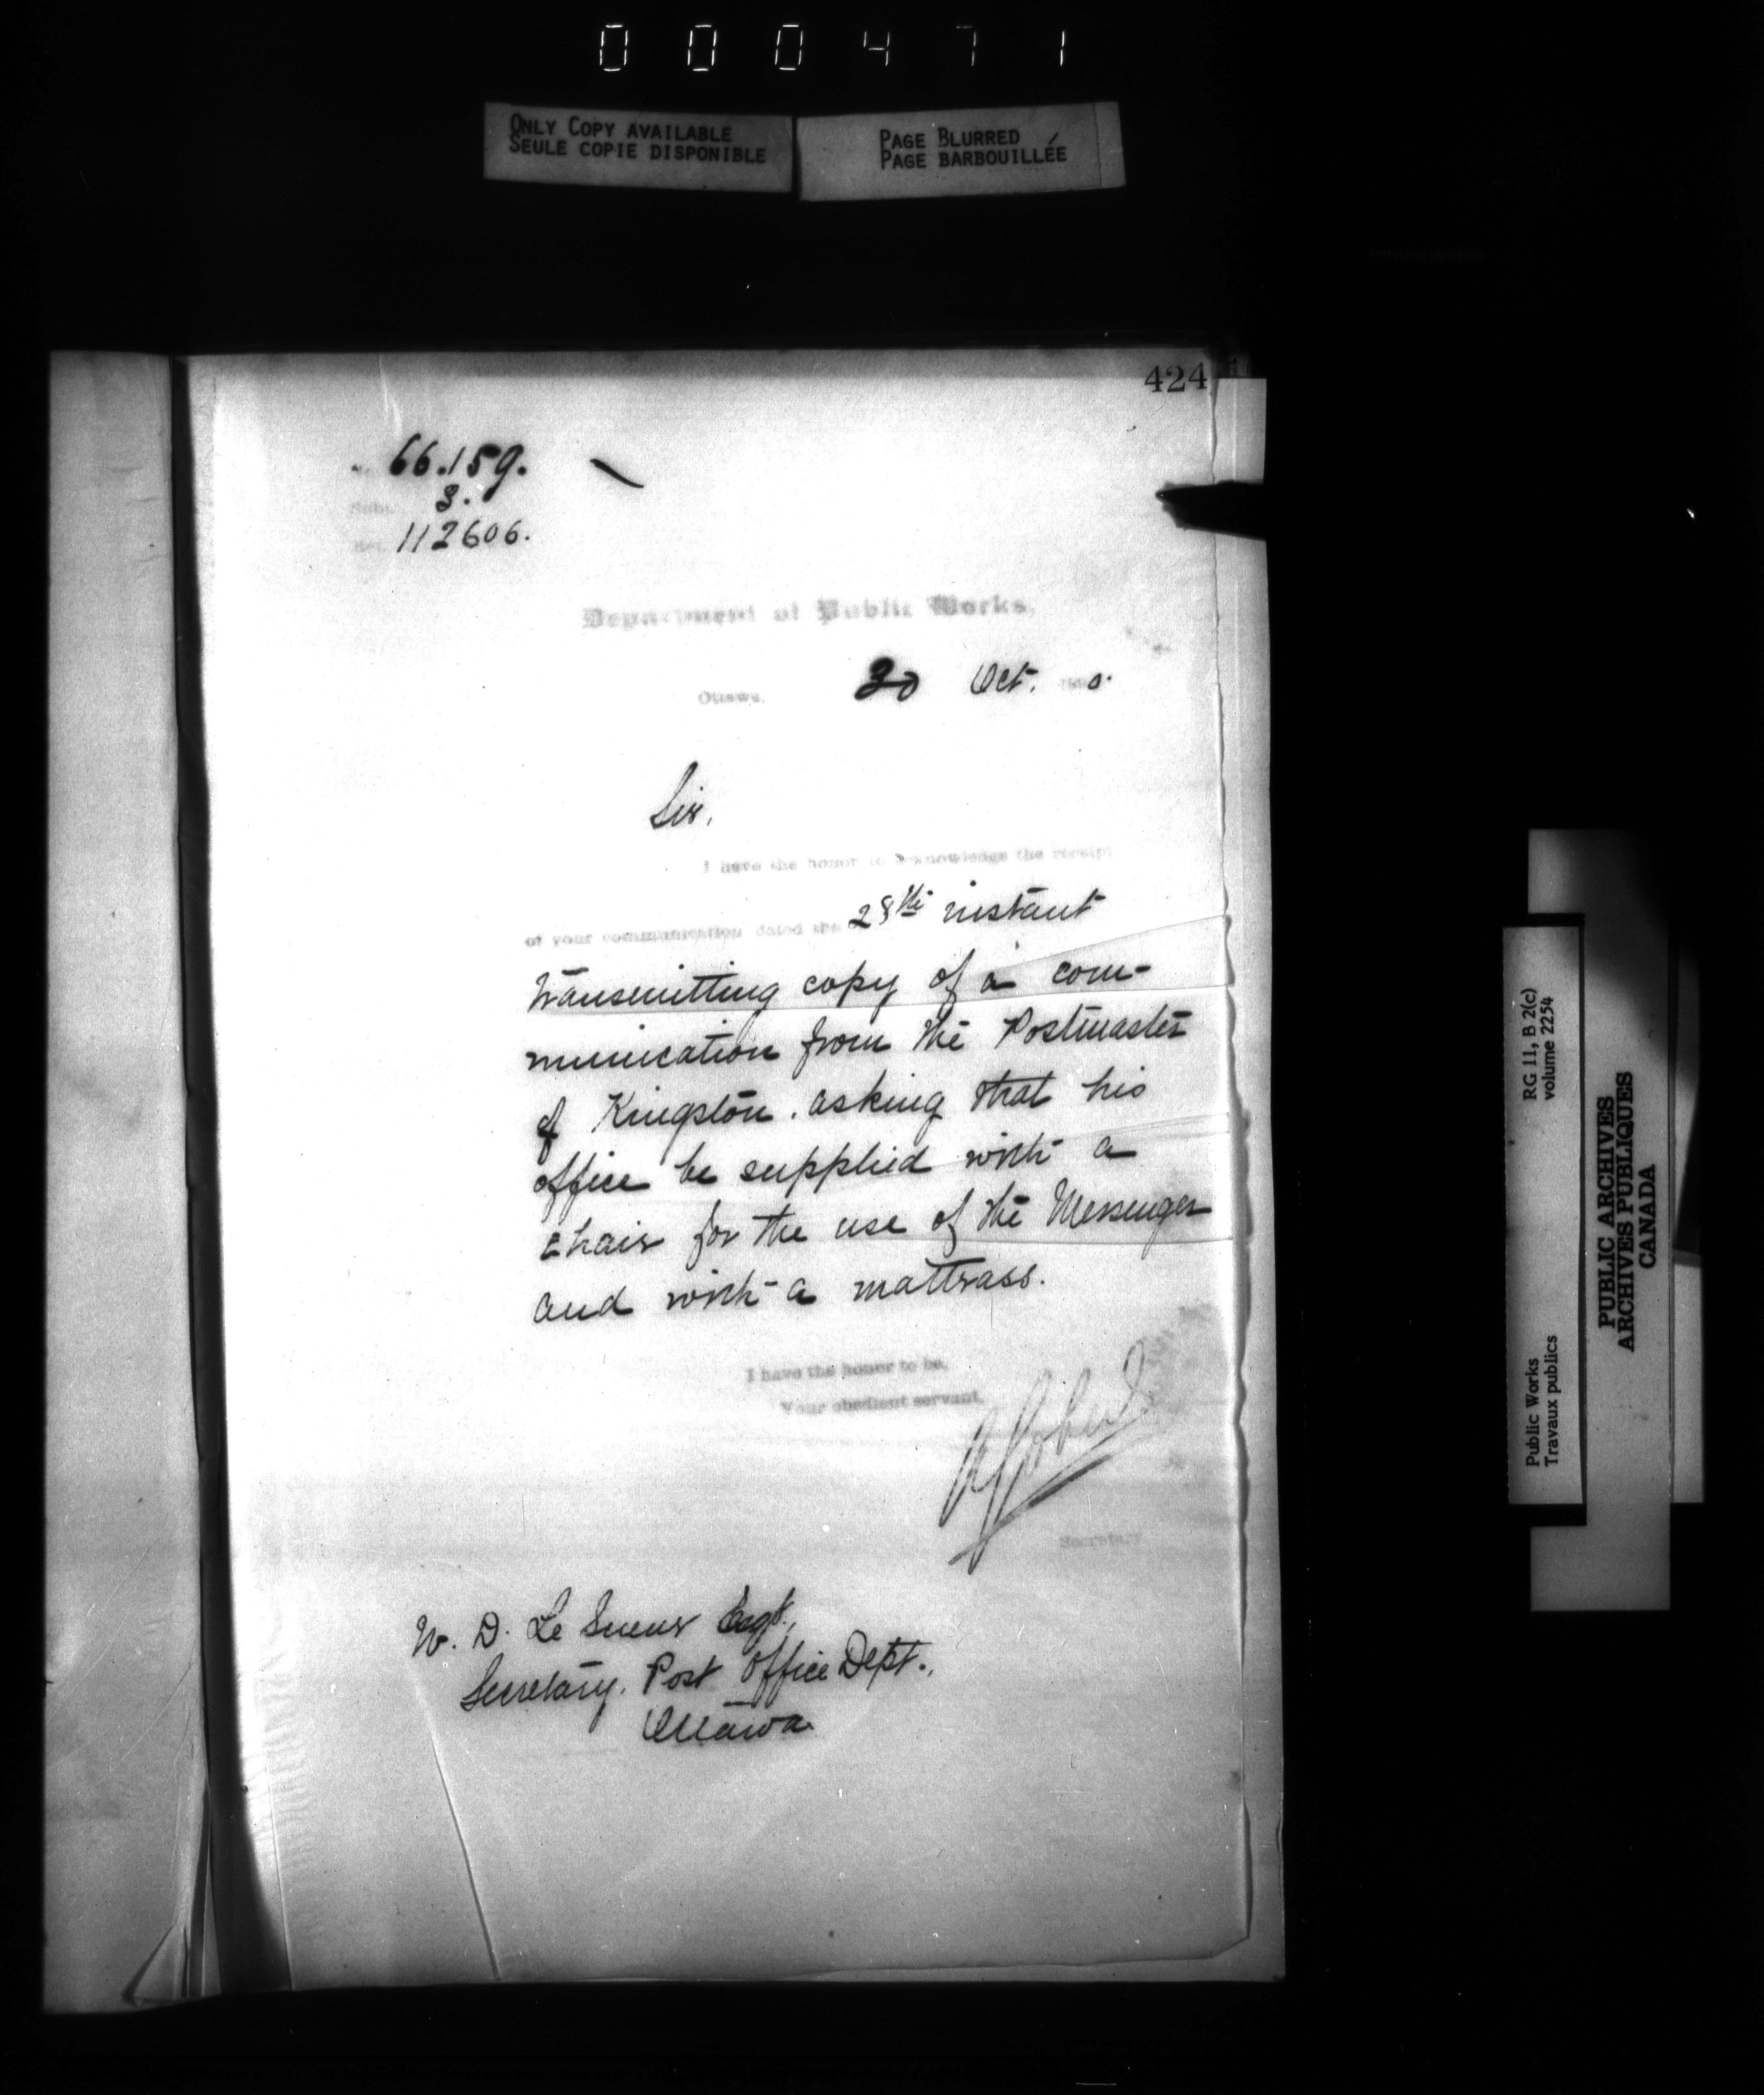 000471
ONLY COPY AVAILABLE
SEULE COPIE DISPONIBLE
PAGE BLURRED
PAGE BARBOUILLÉE
424
66.159.
Subj. 3.
Ref. 112606.
Department of Public Works.
Ottawa, 30 Oct.
Sir,
I have the honor to acknowledge the receipt
of your communication dated the 28th instant
transmitting copy of a com-
munication from the Postmaster
of Kingston. asking that his
office be supplied with a
chair for the use of the Messenger
and with a mattrass.
I have the honor to be,
Your obedient servant,
Secretary
W. D. Le Sueur Esqr.,
Secretary. Post Office Dept.,
Ottawa
RG 11, B 2(c)
volume 2254
Public Works
Travaux publics
PUBLIC ARCHIVES
ARCHIVES PUBLIQUES
CANADA